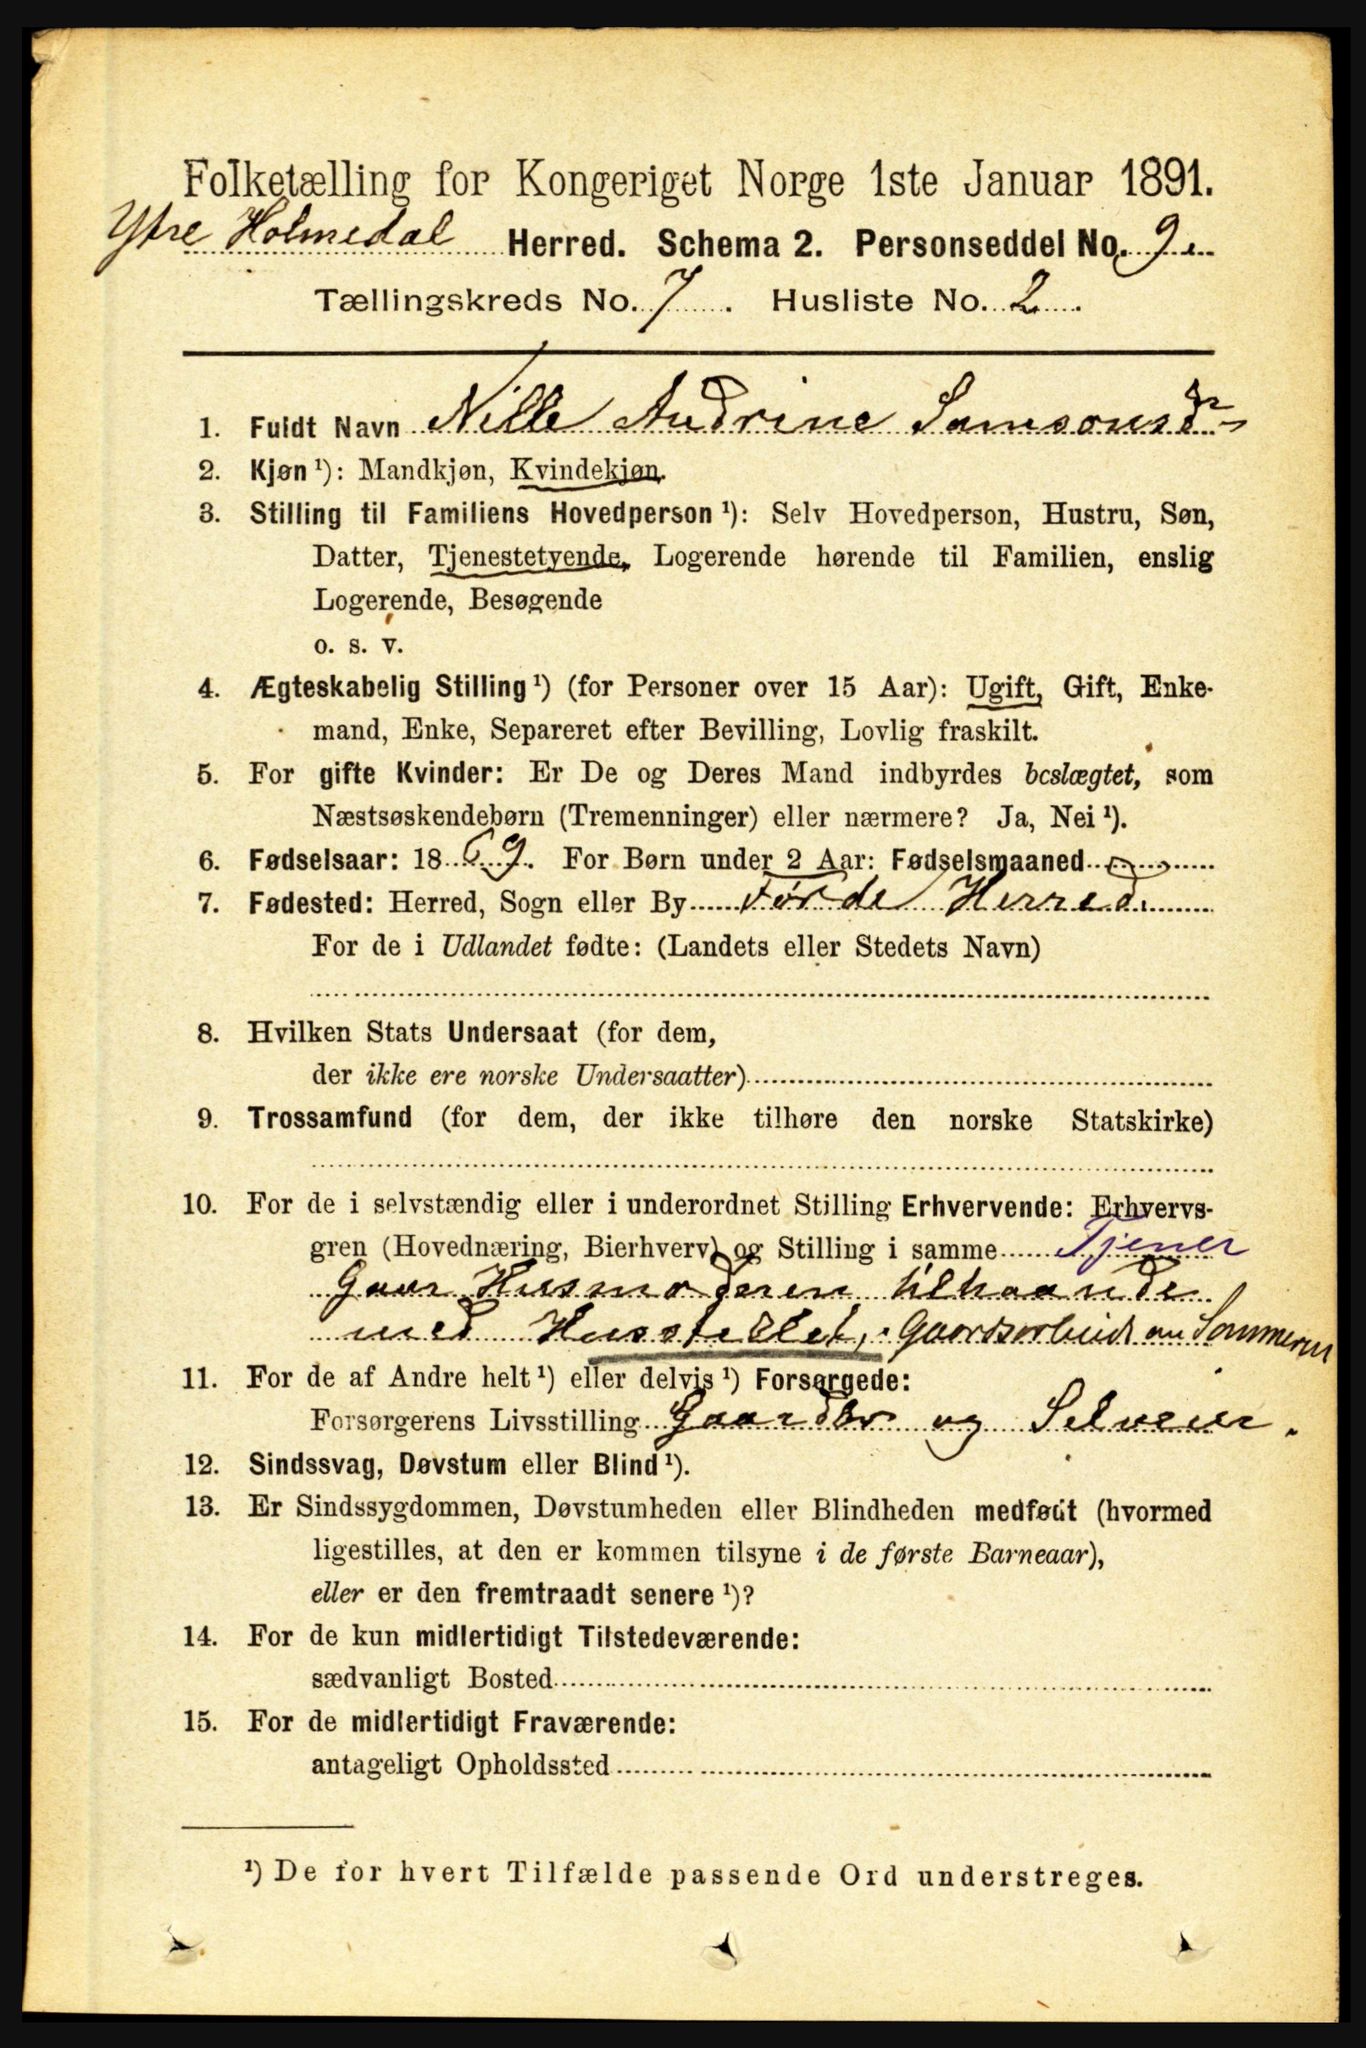 Folketælling for Kongeriget Norge 1ste Januar 1891.
Ytre Holmedal Herred. Schema 2. Personseddel No. 9.
Tællingskreds No. 7. Husliste No. 2.
1. Fuldt Navn Nille Andrine Samsonsdr
2. Kjøn ¹): Mandkjøn, Kvindekjøn.
3. Stilling til Familiens Hovedperson ¹): Selv Hovedperson, Hustru, Søn,
Datter, Tjenestetyende, Logerende hørende til Familien, enslig
Logerende, Besøgende
o. s. v.
4. Ægteskabelig Stilling ¹) (for Personer over 15 Aar): Ugift, Gift, Enke-
mand, Enke, Separeret efter Bevilling, Lovlig fraskilt.
5. For gifte Kvinder: Er De og Deres Mand indbyrdes beslægtet, som
Næstsøskendebørn (Tremenninger) eller nærmere? Ja, Nei ¹).
6. Fødselsaar: 1869. For Børn under 2 Aar: Fødselsmaaned
7. Fødested: Herred, Sogn eller By Førde Herred.
For de i Udlandet fødte: (Landets eller Stedets Navn)
8. Hvilken Stats Undersaat (for dem,
der ikke ere norske Undersaatter)
9. Trossamfund (for dem, der ikke tilhøre den norske Statskirke)
10. For de i selvstændig eller i underordnet Stilling Erhvervende: Erhvervs-
gren (Hovednæring, Bierhverv) og Stilling i samme Tjener
Gaar Husmoderen tilhaande
med Husstellet, Gaardsarbeide om Sommeren
11. For de af Andre helt ¹) eller delvis ¹) Forsørgede:
Forsørgerens Livsstilling Gaardbr og Selveier.
12. Sindssvag, Døvstum eller Blind ¹).
13. Er Sindssygdommen, Døvstumheden eller Blindheden medfødt (hvormed
ligestilles, at den er kommen tilsyne i de første Barneaar),
eller er den fremtraadt senere ¹)?
14. For de kun midlertidigt Tilstedeværende:
sædvanligt Bosted
15. For de midlertidigt Fraværende:
antageligt Opholdssted
¹) De for hvert Tilfælde passende Ord understreges.